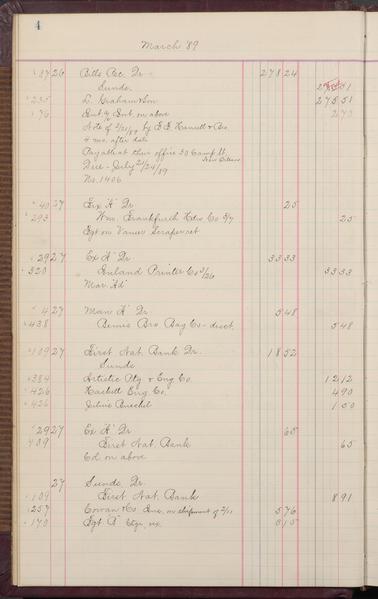 4
March '89
37 26 Bills Rec. Dr. 278 24
Sunds.
235 L. Graham & Son 275 51
76 Int % Int. on above 2 73
Note of 2/21/89 by E. F. & Bro
4 mo. after date
Payable at their office 30 Camp St.
New Orleans
Due - July 21/24/89
No. 1406
40 27 Ex "A" Dr 25
293 Wm. Frankfurth Hdw Co 3/7 25
Egt on Scraper ret
29 27 Ex "A" Dr 33 33
320 Inland Printer Co 3/26 33 33
Mar. Ad
4 27 Man "A" Dr 5 48
438 Bemis Bro Bag Co - disct. 5 48
109 27 First Nat. Bank Dr. 18 52
Sunds
384 Artistic Ptg & Eng Co. 12 12
426 Haskett Eng. Co. 4 90
426 Julius 1 50
29 27 Ex "A" Dr 65
109 First Nat. Bank 65
Cd on above
27 Sunds. Dr.
109 First Nat. Bank 8 91
257 Cowan & Co on shipment of 2/11 5 76
170 Egt "A" 3 15